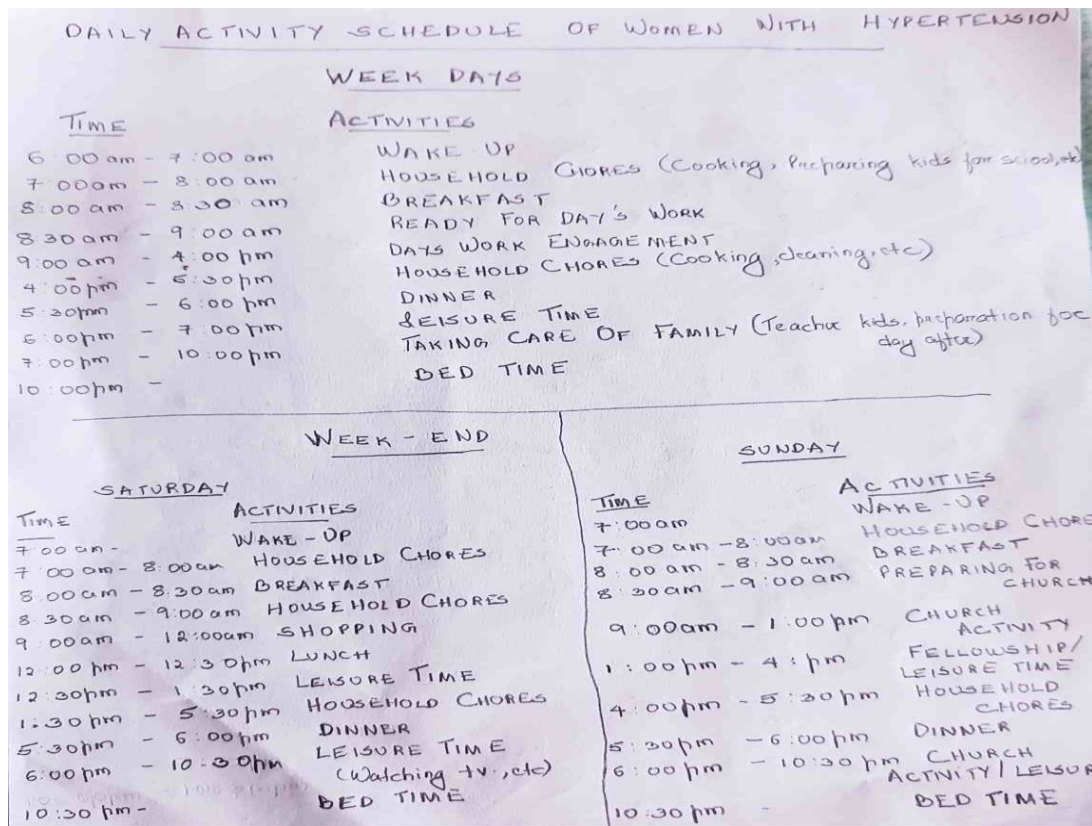 DAILY ACTIVITY SCHEDULE OF WOMEN WITH HYPERTENSION
WEEK DAYS
TIME ACTIVITIES
6:00 am - 7:00 am WAKE UP
7:00am - 8:00 am HOUSEHOLD CHORES (Cooking, Preparing kids for scool, etc)
8:00 am - 8:30 am BREAKFAST
8:30 am - 9:00 am READY FOR DAY'S WORK
9:00 am - 4:00 pm DAYS WORK ENGAGEMENT
4:00pm - 5:30pm HOUSEHOLD CHORES (Cooking, cleaning, etc)
5:30pm - 6:00 pm DINNER
6:00pm - 7:00pm LEISURE TIME
7:00pm - 10:00pm TAKING CARE OF FAMILY (Teache kids, preparation for
day after)
10:00pm - BED TIME
WEEK - END
SATURDAY
TIME ACTIVITIES
7:00 am - WAKE-UP
7:00 am - 8:00am HOUSEHOLD CHORES
8:00am - 8:30am BREAKFAST
8:30am - 9:00am HOUSEHOLD CHORES
9:00am - 12:00am SHOPPING
12:00 pm - 12:30pm LUNCH
12:30pm - 1:30pm LEISURE TIME
1:30pm - 5:30pm HOUSEHOLD CHORES
5:30pm - 6:00pm DINNER
6:00pm - 10:30pm LEISURE TIME
(Watching tv., etc)
10:30 pm - BED TIME
SUNDAY
TIME ACTIVITIES
7:00am WAKE-UP
7:00 am - 8:00am HOUSEHOLD CHORES
8:00 am - 8:30am BREAKFAST
8:30am - 9:00am PREPARING FOR
CHURCH
9:00am - 1:00pm CHURCH
ACTIVITY
1:00pm - 4:pm FELLOWSHIP/
LEISURE TIME
4:00pm - 5:30pm HOUSEHOLD
CHORES
5:30pm - 6:00pm DINNER
6:00pm - 10:30pm CHURCH
ACTIVITY/LEISUR
10:30pm - BED TIME